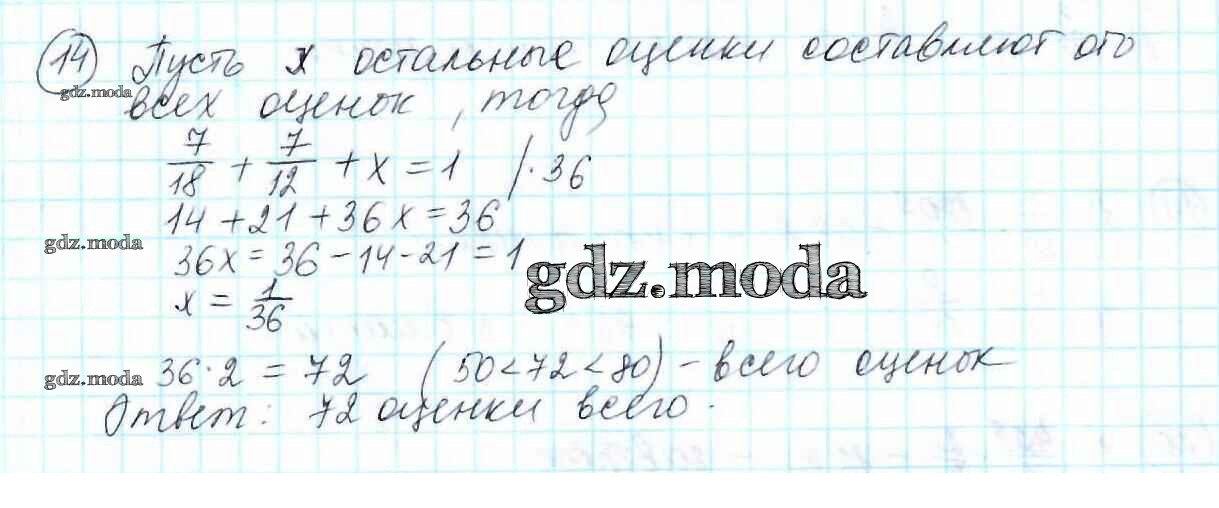 14 Пусть x остальные оценки составляют ото
gdz.moda
всех оценок, тогда
7/18 + 7/12 + x = 1 /·36
14 + 21 + 36x = 36
gdz.moda
36x = 36 - 14 - 21 = 1
gdz.moda
x = 1/36
36·2 = 72 (50<72<80) - всего оценок
gdz.moda
Ответ: 72 оценки всего.